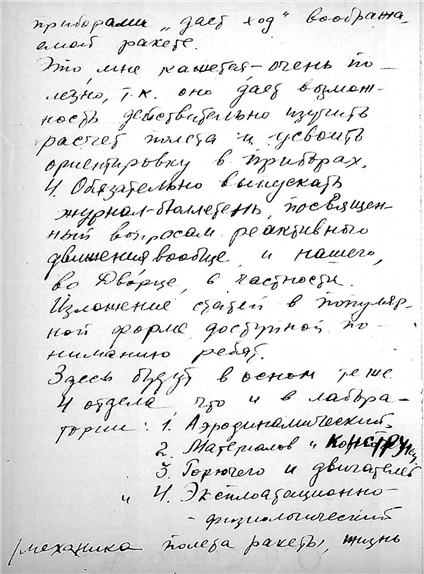 приборами „дает ход" вообража-
емой ракете.
Это, мне кажется - очень по-
лезно, т.к. оно дает возмож-
ность действительно изучить
расчет полета и усвоить
ориентировку в приборах.
4. Обязательно выпускать
журнал-бюллетень, посвящен-
ный вопросам реактивного
движения вообще и нашего,
во Дворце, в частности.
Изложение статей в популяр-
ной форме, доступной по-
ниманию ребят.
Здесь будут в основ. те же
4 отдела что и в лабора-
тории: 1. Аэродинамический
2. Материалов и констру
3. Горючего и двигателей
" 4. Эксплоатационно-
-физиологический
(механика полета ракеты, жизнь